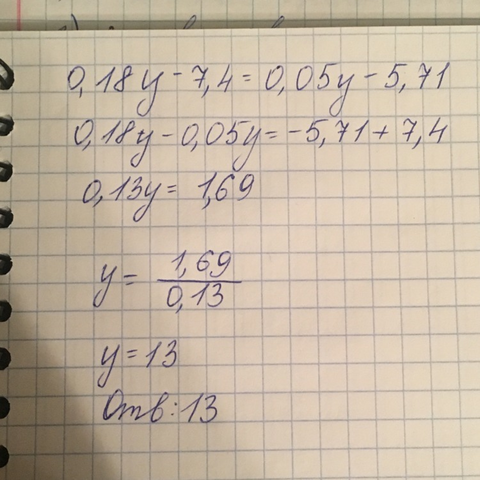 0,18y - 7,4 = 0,05y - 5,71
0,18y - 0,05y = -5,71 + 7,4
0,13y = 1,69
y = 1,69 / 0,13
y = 13
Отв: 13